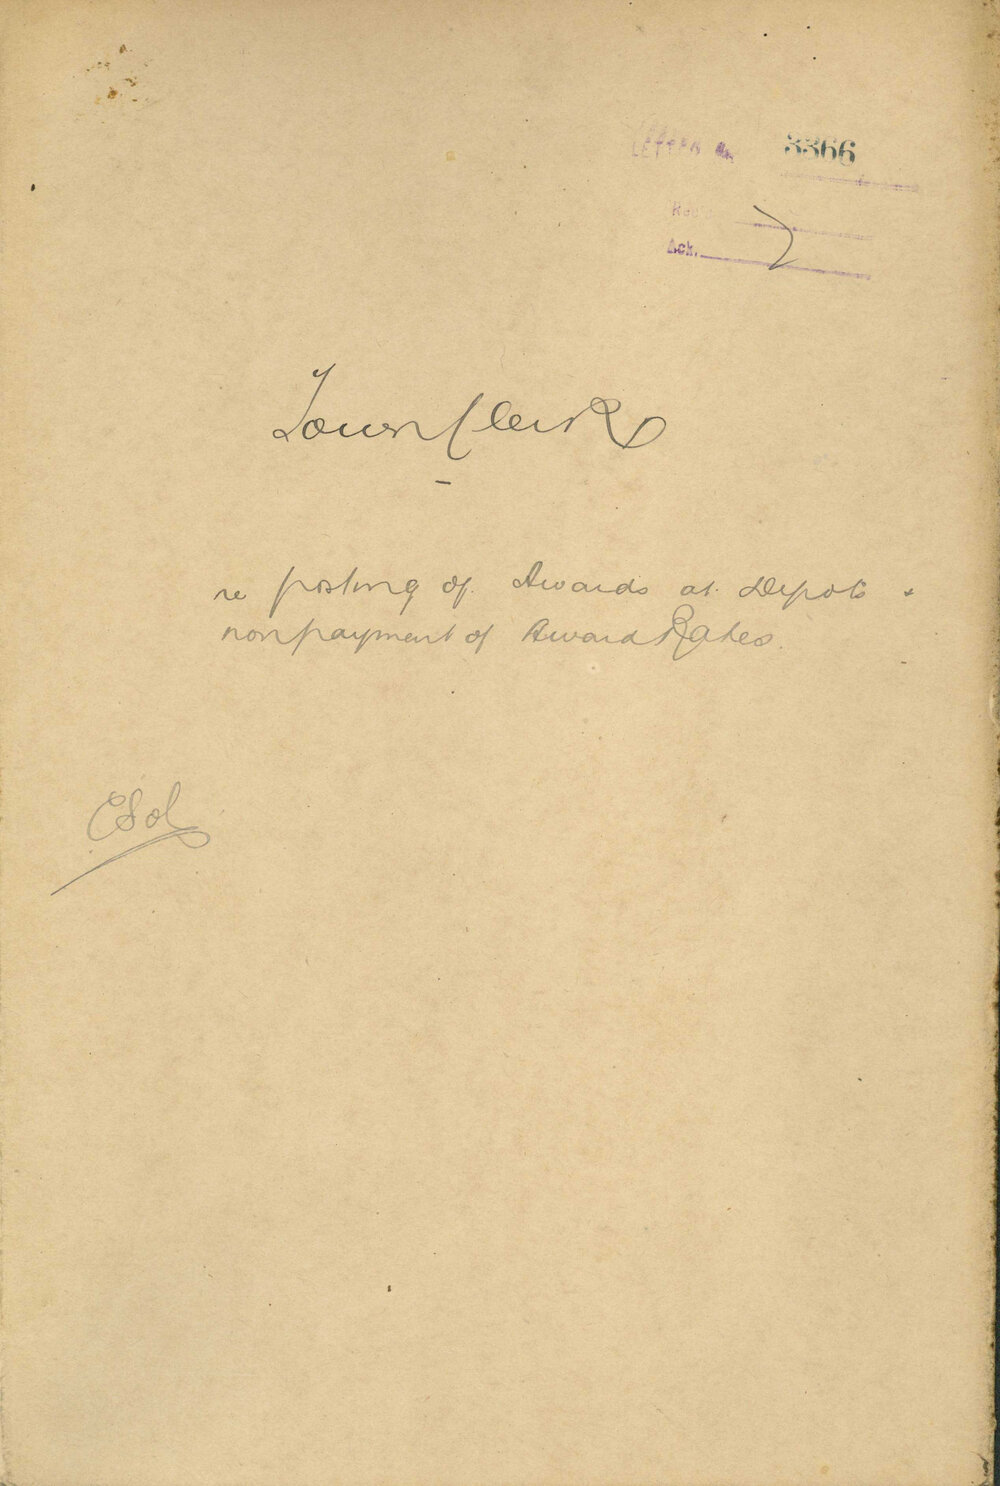 LETTER No. 3366
Rec'd
Ack.
Town Clerk
re posting of Awards at Depots +
nonpayment of Award Rates.
C Sol